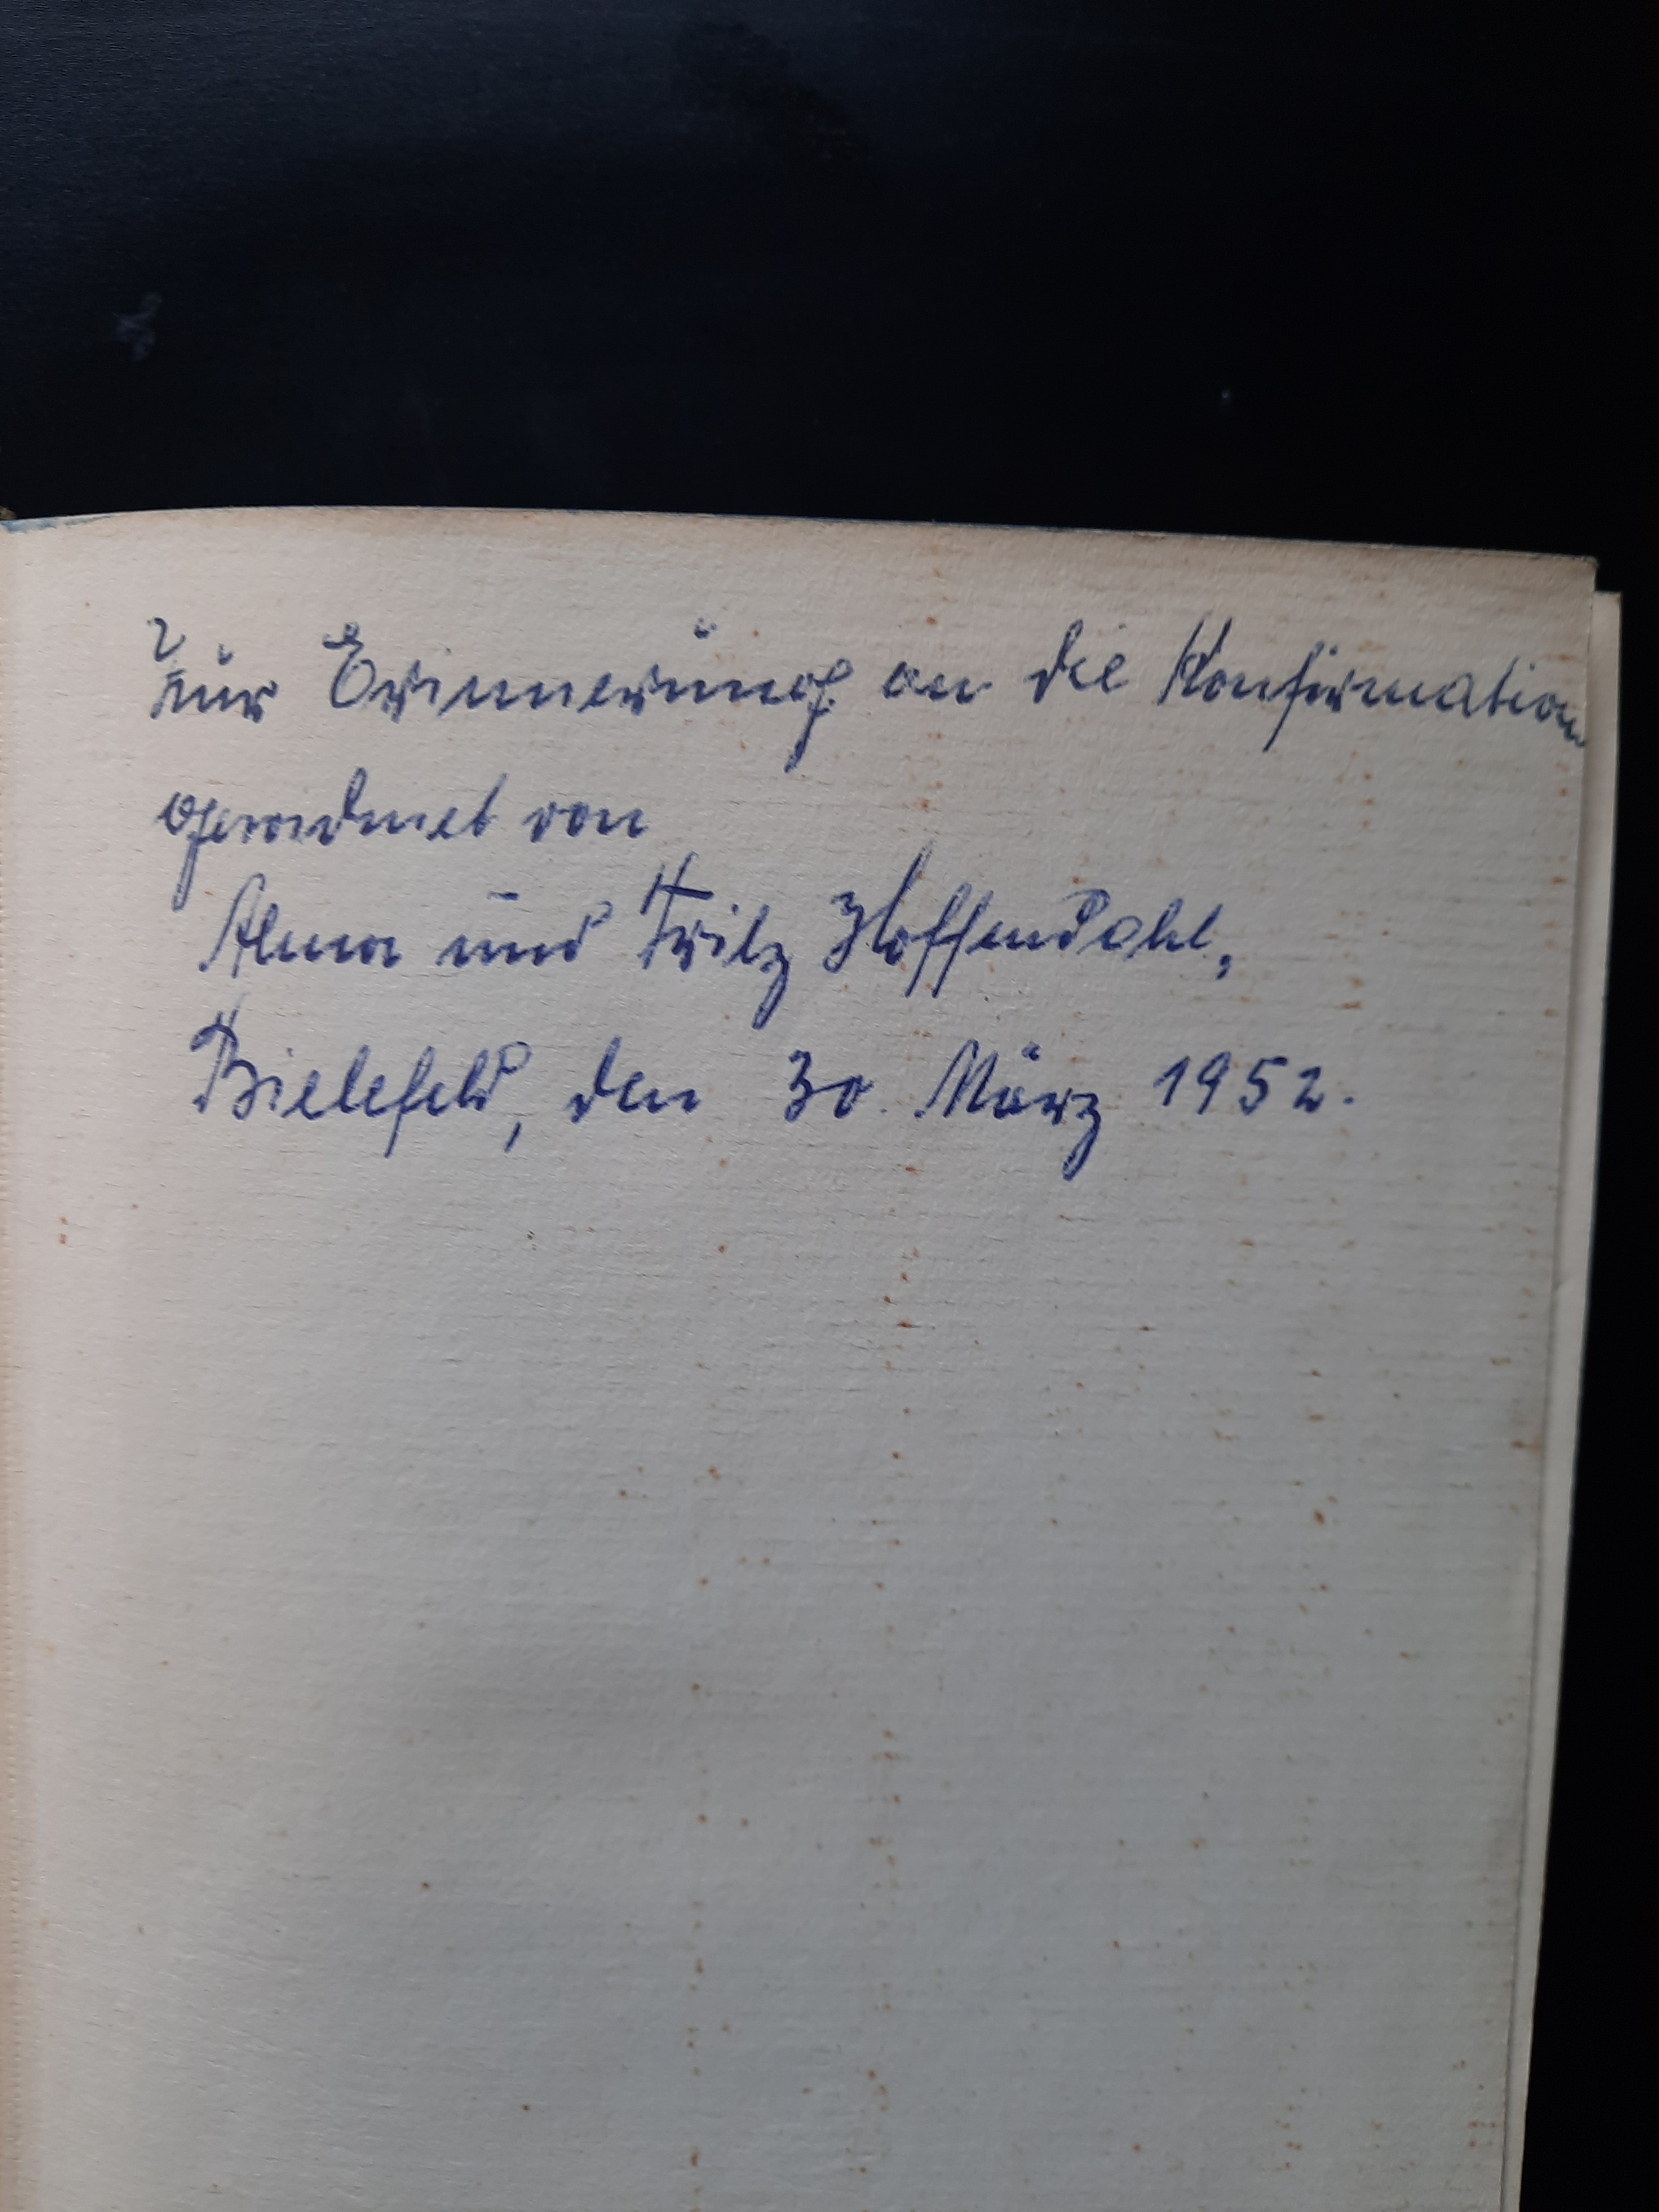 Zur Erinnerung an die Konfirmation
gewidmet von
Alma und Fritz Hoffendahl,
Bielefeld, den 30. März 1952.